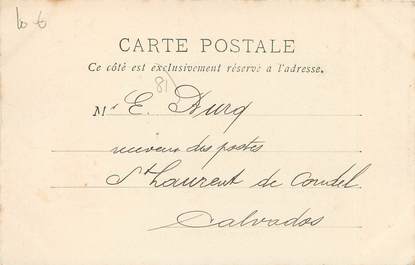 10 €
CARTE POSTALE
Ce côté est exclusivement réservé à l'adresse.
81
Mr E. Durq
receveur des postes
St Laurent de Condel
Calvados